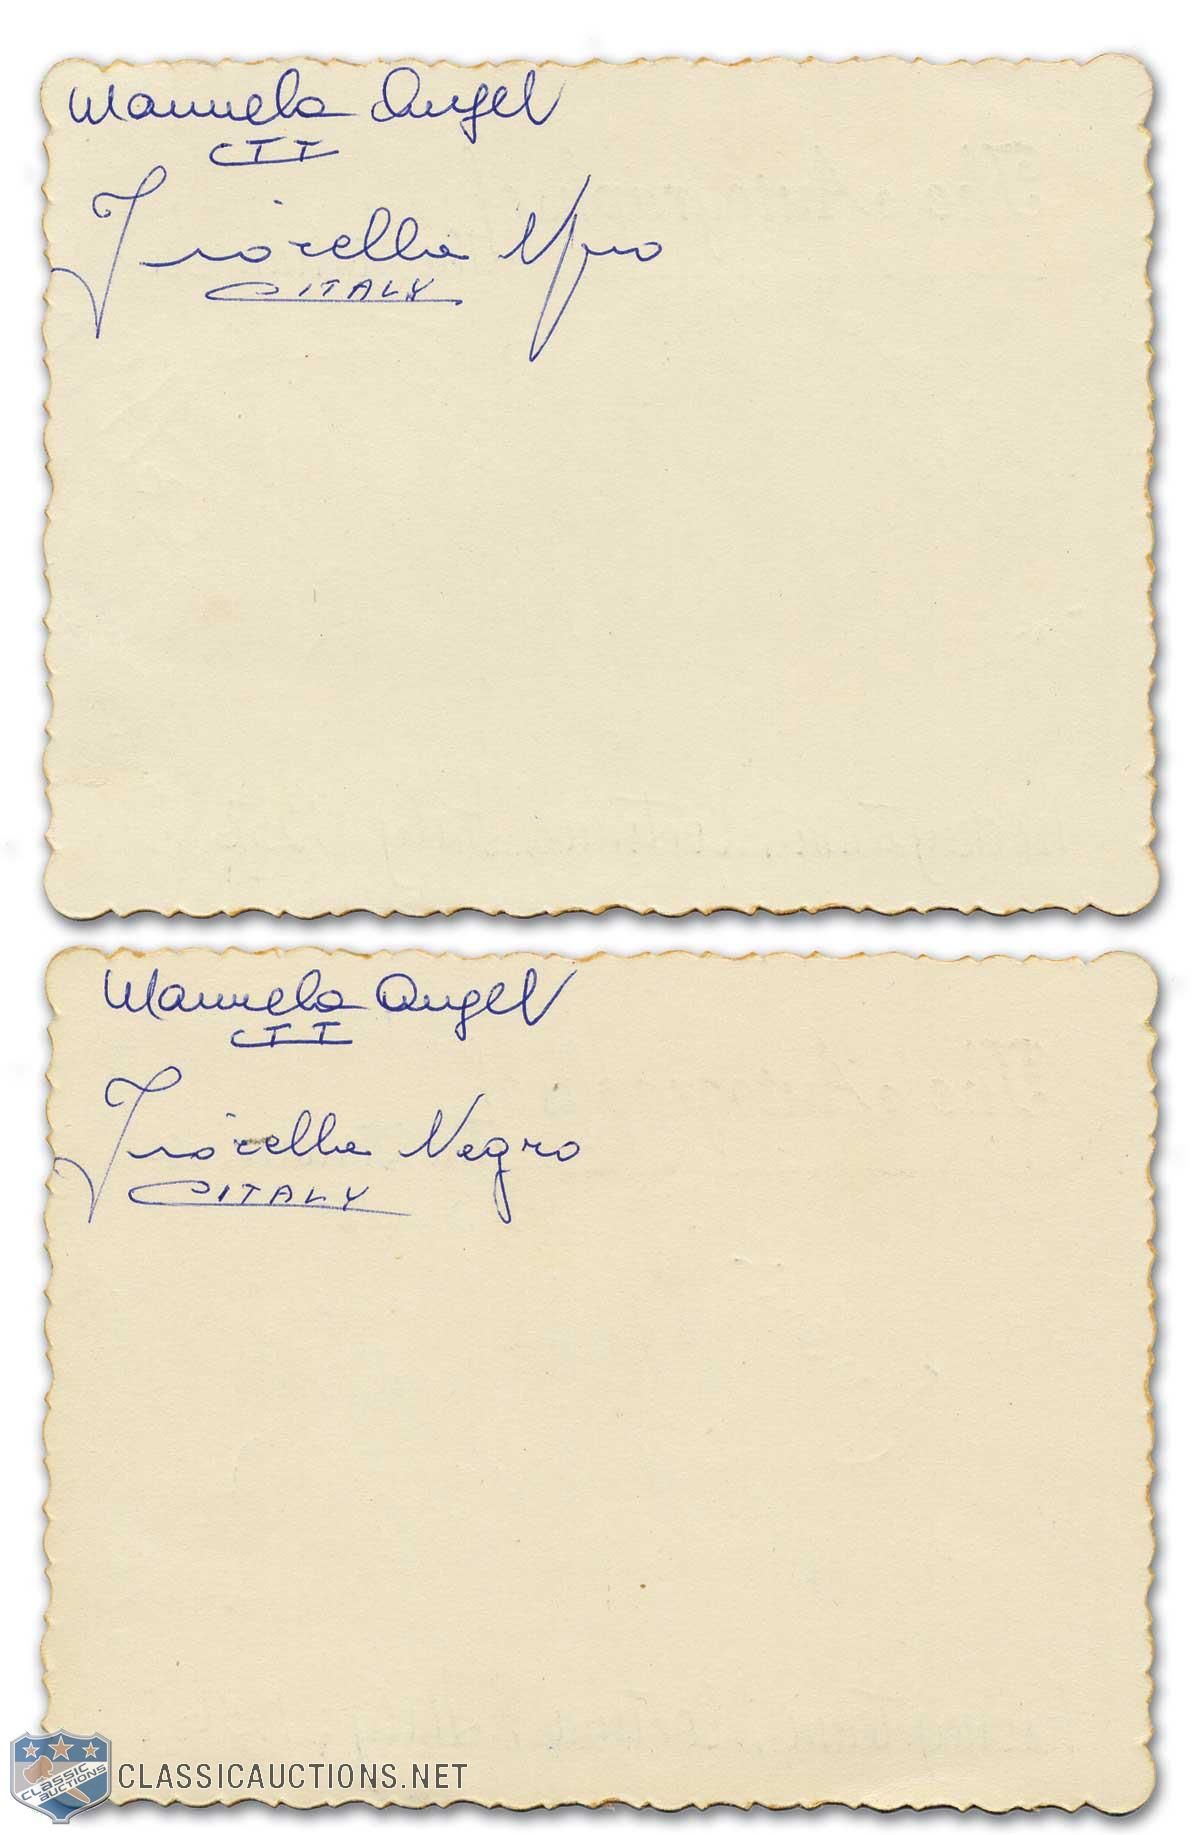 Manuela Angel
CIT
Fiorella Negro
ITALY
Manuela Angel
CIT
Fiorella Negro
ITALY
CLASSIC AUCTIONS
CLASSICAUCTIONS.NET